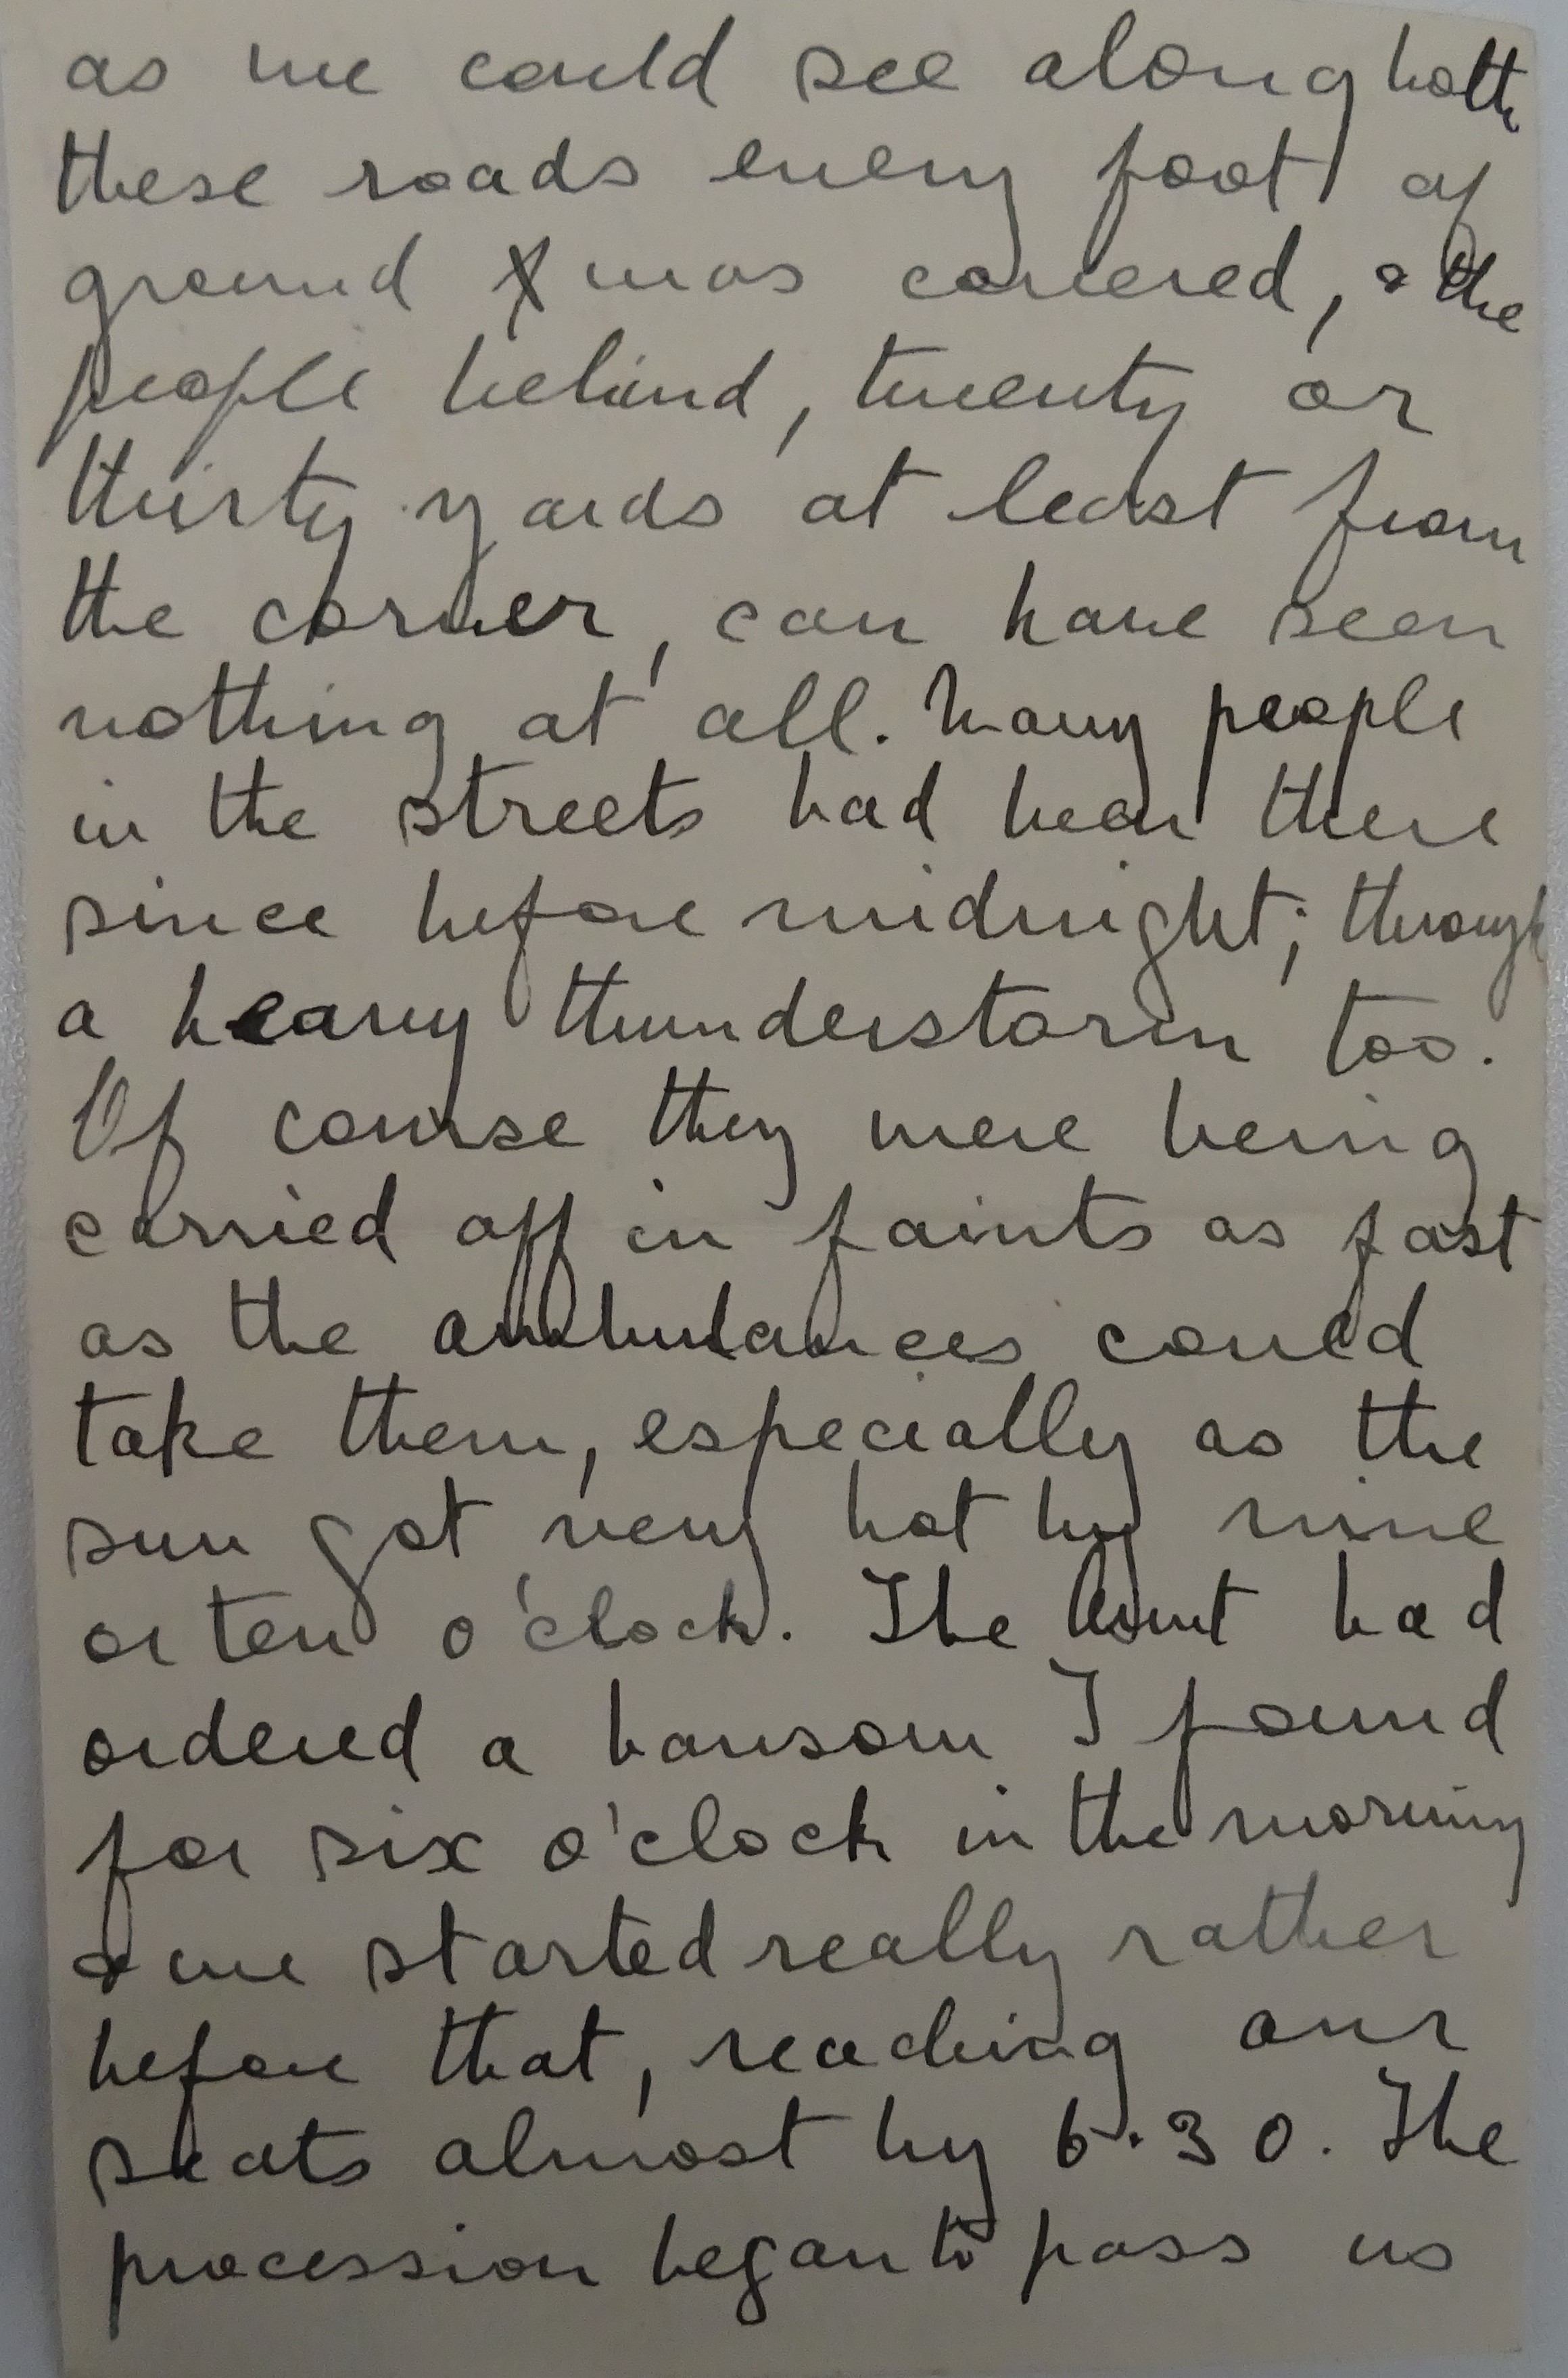 as we could see along both
these roads every foot of
ground was covered, & the
people behind, twenty or
thirty yards at least from
the corner, can have seen
nothing at all. Many people
in the streets had been there
since before midnight; through
a heavy thunderstorm too.
Of course they were being
carried off in faints as fast
as the ambulances could
take them, especially as the
sun got very hot by nine
or ten o'clock. The Aunt had
ordered a hansom I found
for six o'clock in the morning
& we started really rather
before that, reaching our
seats almost by 6.30. The
procession began to pass us